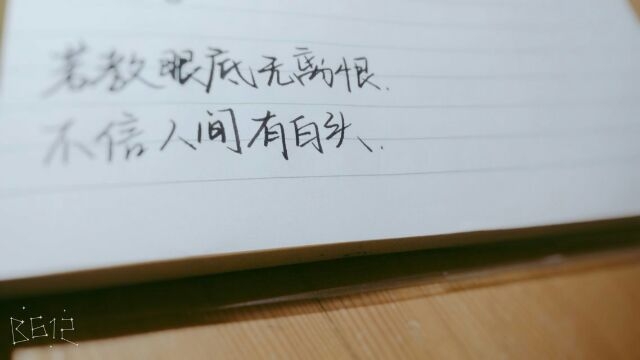 若教眼底无离恨.
不信人间有白头.
B612